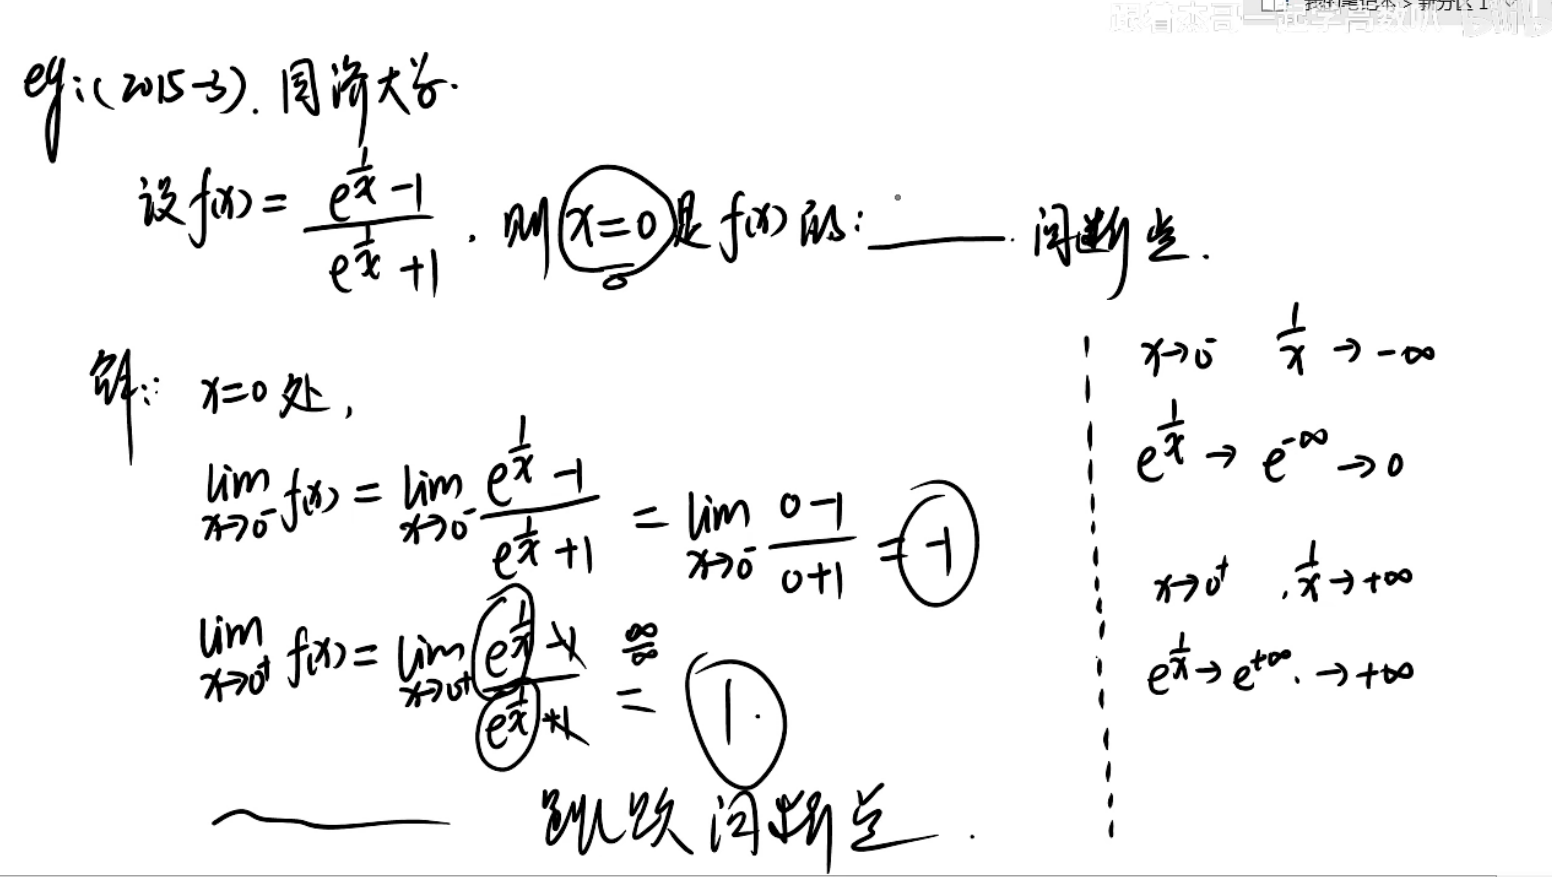 跟着杰哥一起学高数
我的笔记本 > 新分区 1
eg:(2015-3). 同济大学.
设 f(x) = \frac{e^{\frac{1}{x}}-1}{e^{\frac{1}{x}}+1}. 则 x=0 是 f(x) 的: ______ 间断点.
解: x=0 处,
lim_{x→0^-} f(x) = lim_{x→0^-} \frac{e^{\frac{1}{x}}-1}{e^{\frac{1}{x}}+1} = lim_{x→0^-} \frac{0-1}{0+1} = -1
lim_{x→0^+} f(x) = lim_{x→0^+} \frac{e^{\frac{1}{x}}-1}{e^{\frac{1}{x}}+1} \overset{\frac{∞}{∞}}{=} 1.
跳跃间断点.
x→0^- \frac{1}{x} → -∞
e^{\frac{1}{x}} → e^{-∞} → 0
x→0^+ , \frac{1}{x} → +∞
e^{\frac{1}{x}} → e^{+∞}. → +∞